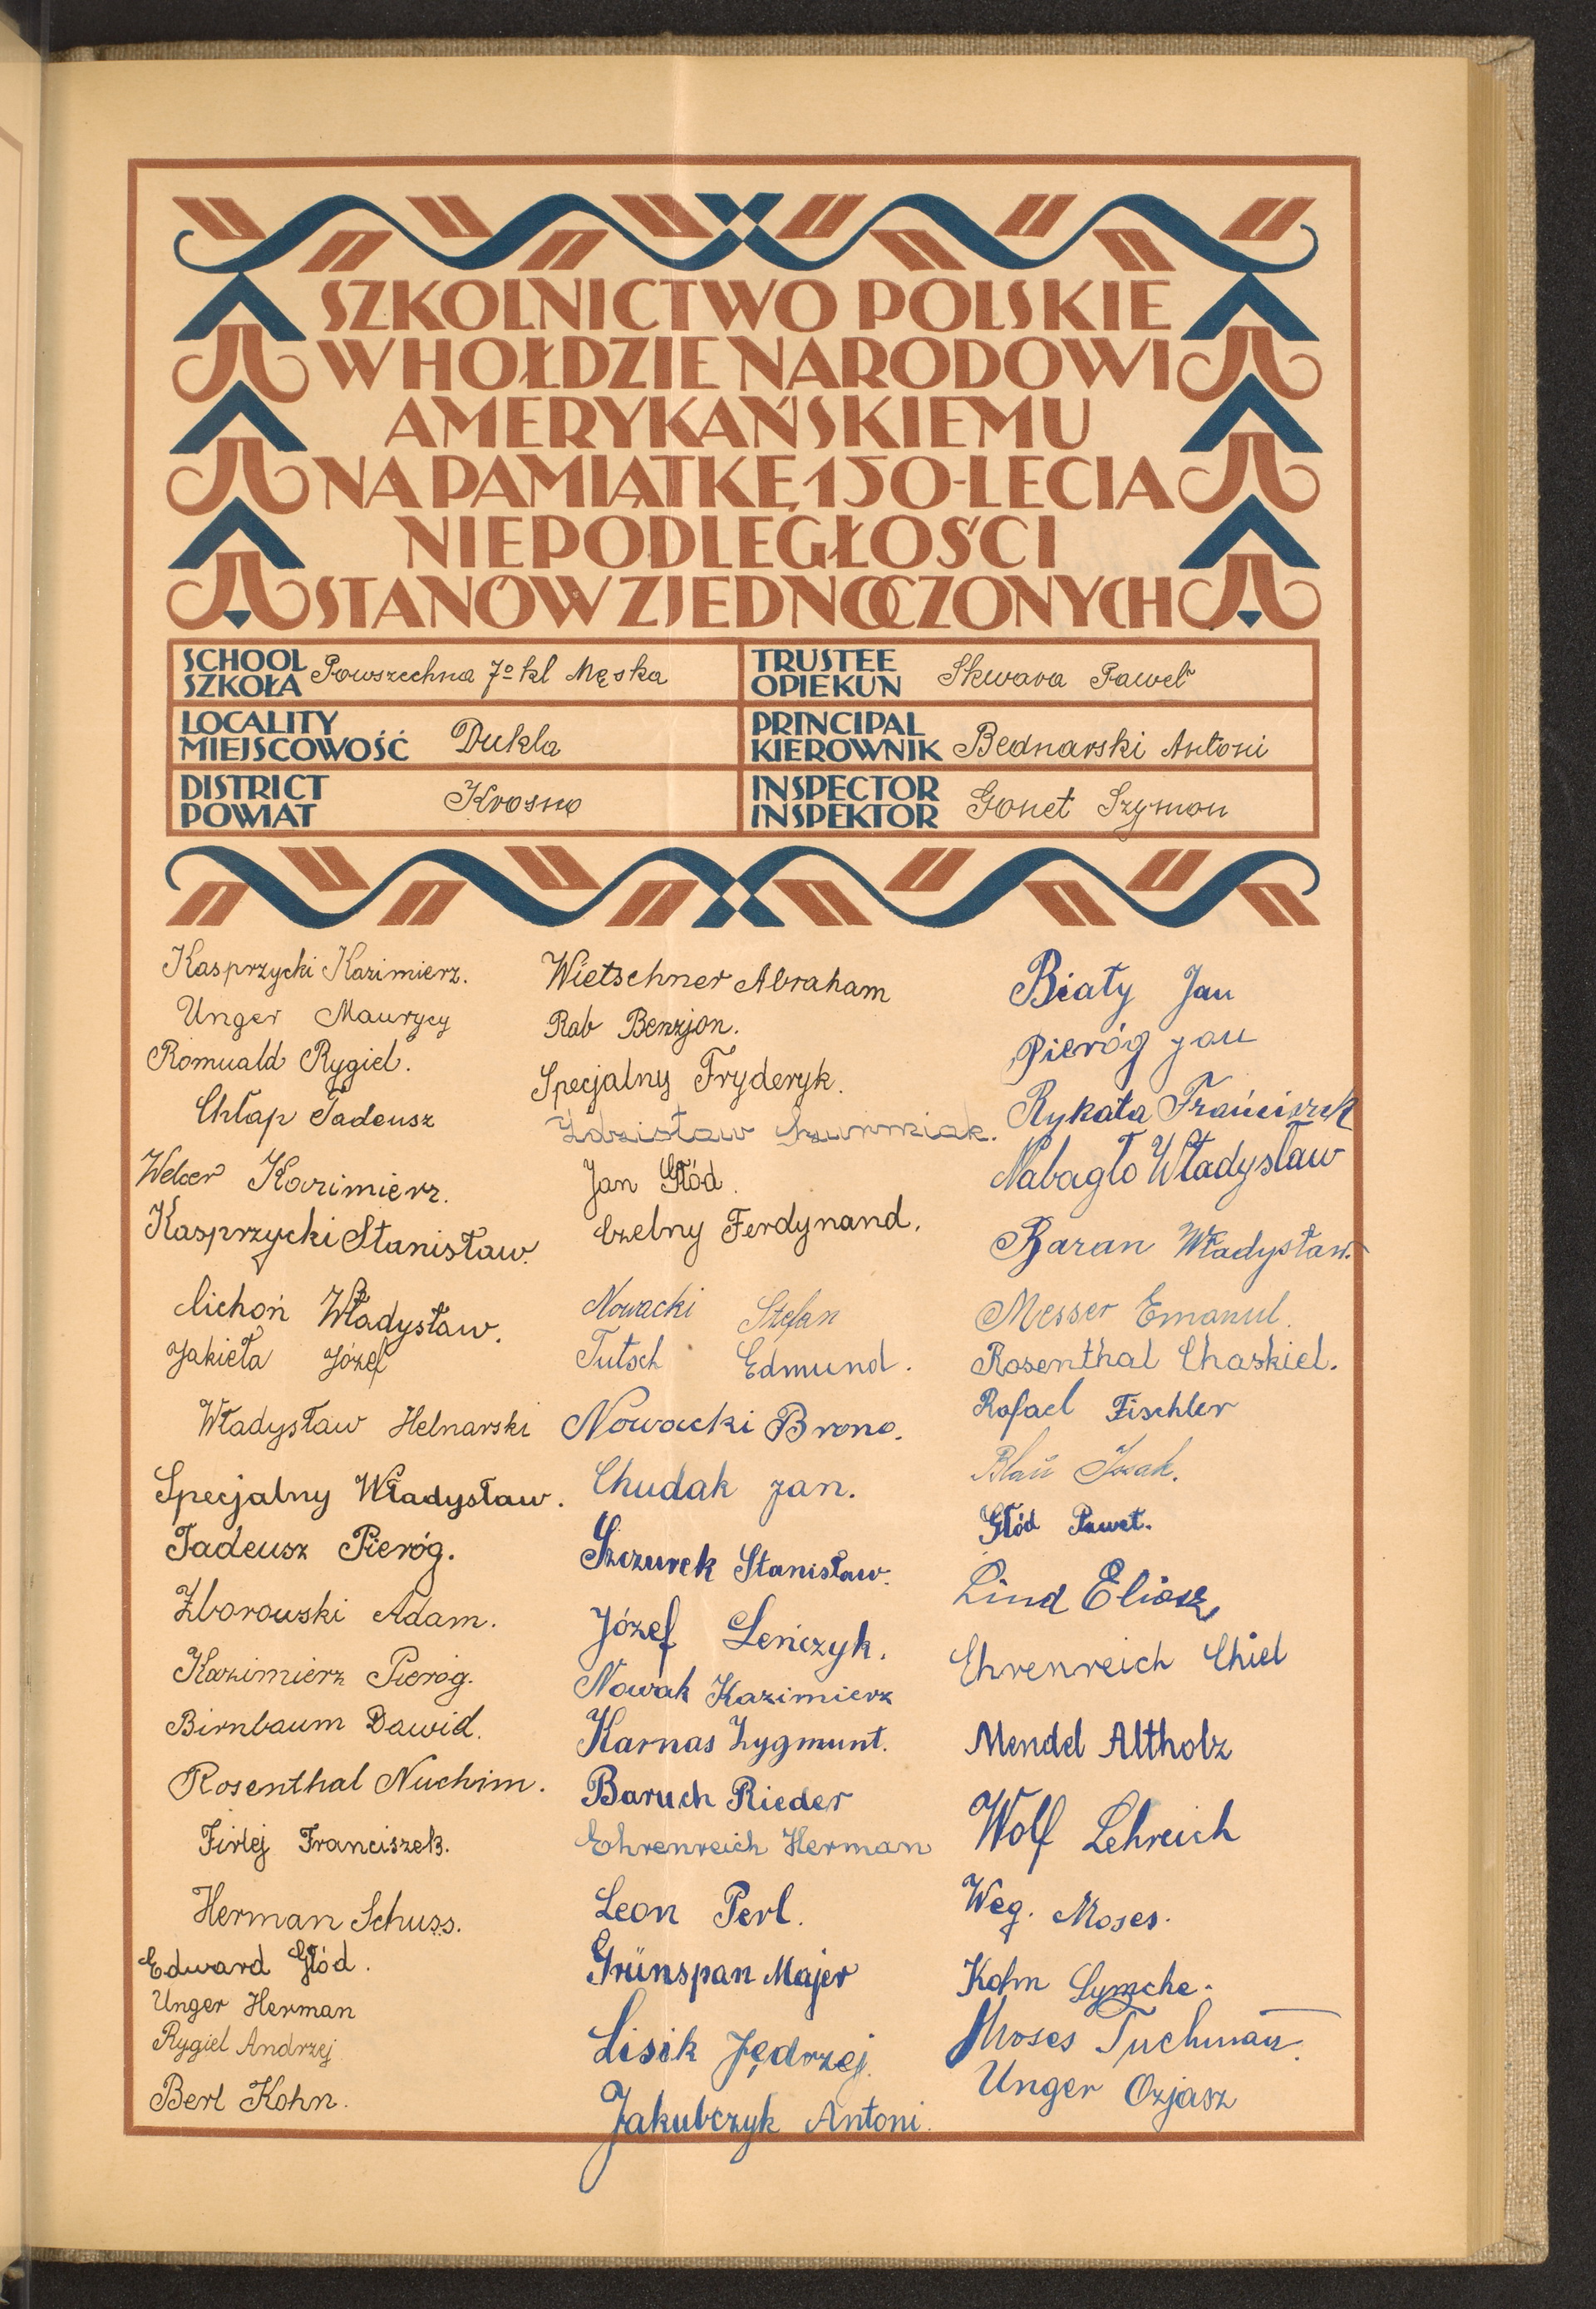 SZKOLNICTWO POLSKIE
W HOŁDZIE NARODOWI
AMERYKAŃSKIEMU
NA PAMIĄTKĘ 150-LECIA
NIEPODLEGŁOŚCI
STANÓW ZJEDNOCZONYCH
SCHOOL
SZKOŁA
Powszechna 7º kl Męska
TRUSTEE
OPIEKUN
Skwara Paweł
LOCALITY
MIEJSCOWOŚĆ
Dukla
PRINCIPAL
KIEROWNIK
Bednarski Antoni
DISTRICT
POWIAT
Krosno
INSPECTOR
INSPEKTOR
Gonet Szymon
Kasprzycki Kazimierz.
Unger Maurycy
Romuald Rygiel.
Chłap Tadeusz
Kazimierz.
Kasprzycki Stanisław.
Cichoń Władysław.
Jakieła Józef
Władysław Helnarski
Specjalny Władysław.
Tadeusz Pieróg.
Zborowski Adam.
Kazimierz Pieróg.
Birnbaum Dawid.
Rosenthal Nuchim.
Firlej Franciszek.
Herman Schuss.
Edward Głód.
Unger Herman
Rygiel Andrzej
Berl Kohn.
Wietschner Abraham
Rab Benzjon.
Specjalny Fryderyk.
Zdzisław
Jan Głód.
Czelny Ferdynand.
Nowacki Stefan
Tutsch Edmund.
Nowacki Brono.
Chudak Jan.
Szczurek Stanisław.
Józef Leńczyk.
Nowak Kazimierz
Karnas Zygmunt.
Baruch Rieder
Ehrenreich Herman
Leon Perl.
Grünspan Majer
Lisik Jędrzej.
Jakubczyk Antoni.
Biały Jan
Pieróg Jan
Rykała Franciszek
Nabagło Władysław
Baran Władysław.
Messer Emanul.
Rosenthal Chaskiel.
Rafael Fischler
Blau
Głód Paweł.
Lind Eliasz
Ehrenreich Chiel
Mendel Altholz
Wolf Lehreich
Weg. Moses.
Kohn Symche.
Moses Tuchman.
Unger Ozjasz